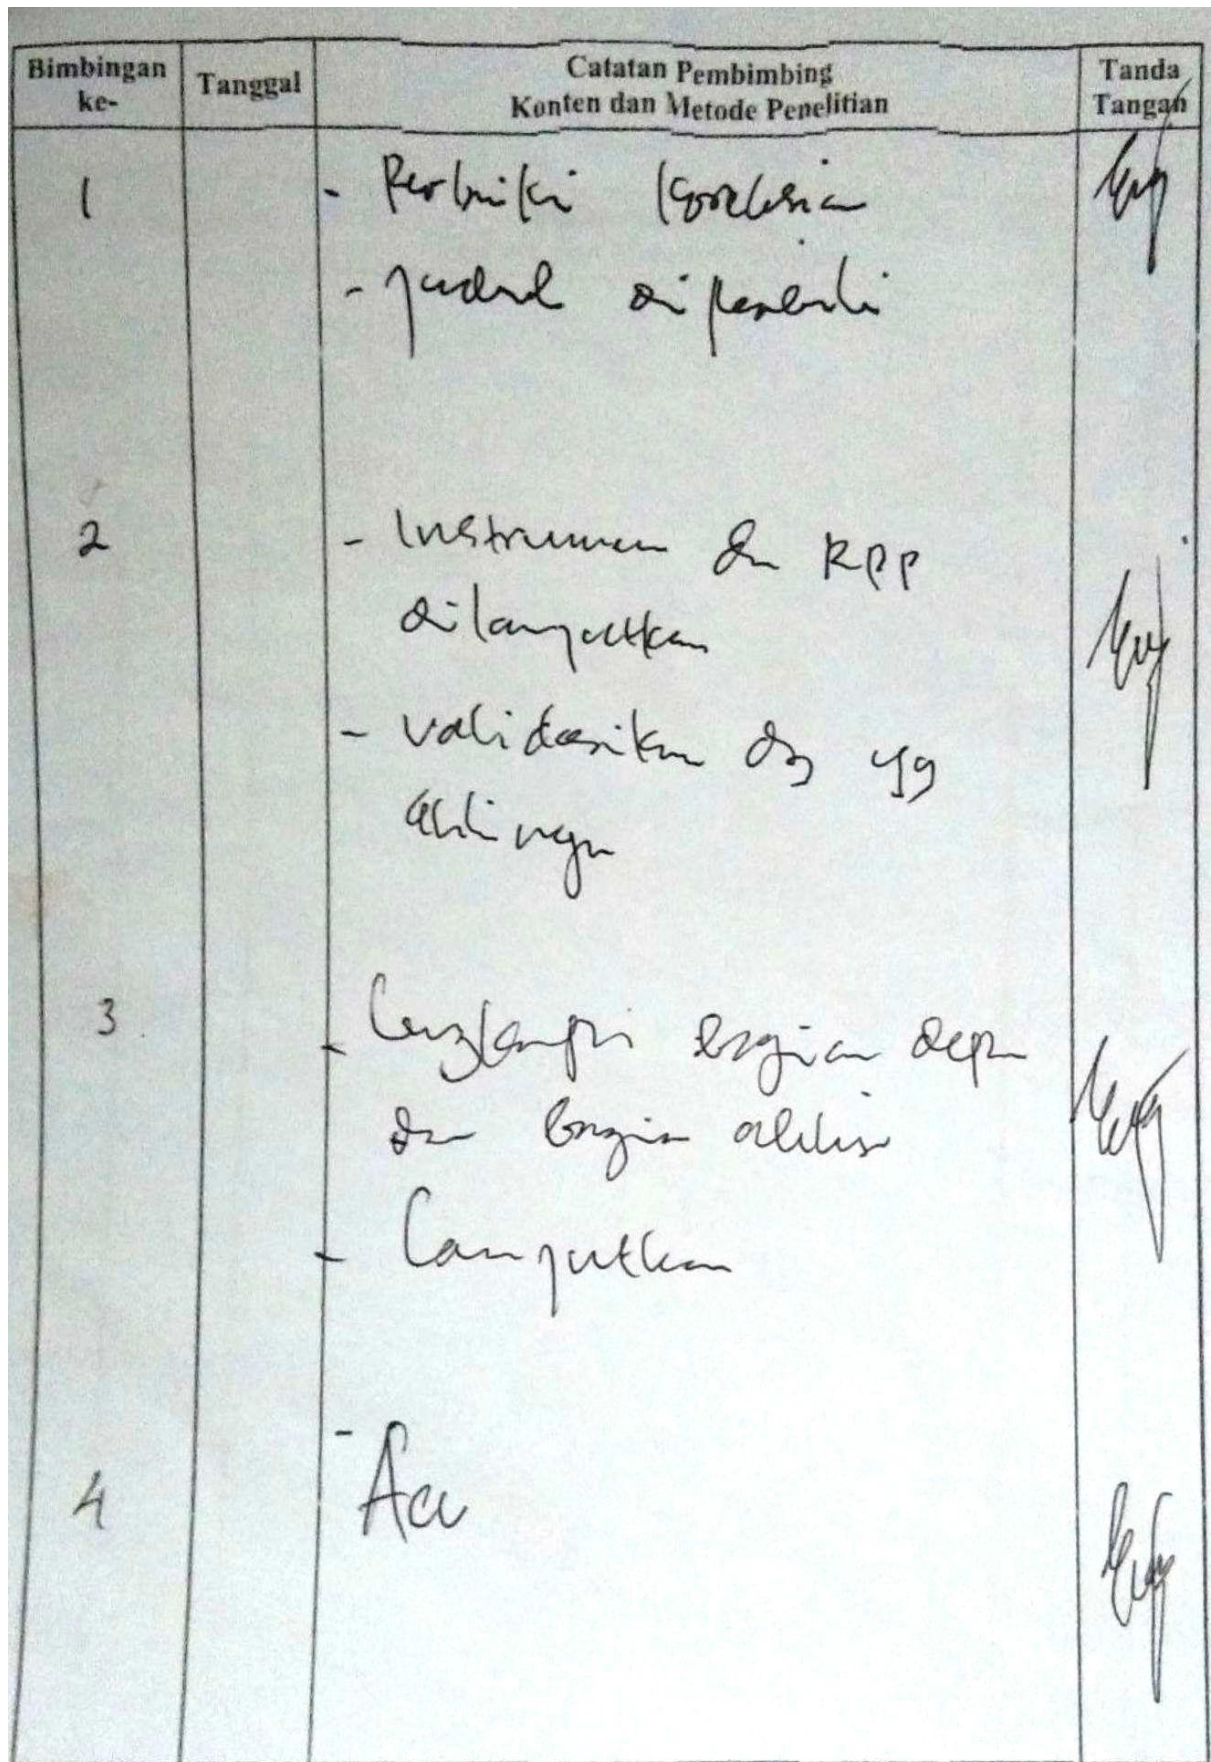 Bimbingan ke-
Tanggal
Catatan Pembimbing
Konten dan Metode Penelitian
Tanda Tangan
1
- Perbaiki
- Judul diperbaiki
2
- Instrumen dan RPP
dilanjutkan
- validasikan dg yg
ahlinya
3
- Lengkapi bagian depan
dan bagian akhir
- Lanjutkan
4
- Acc